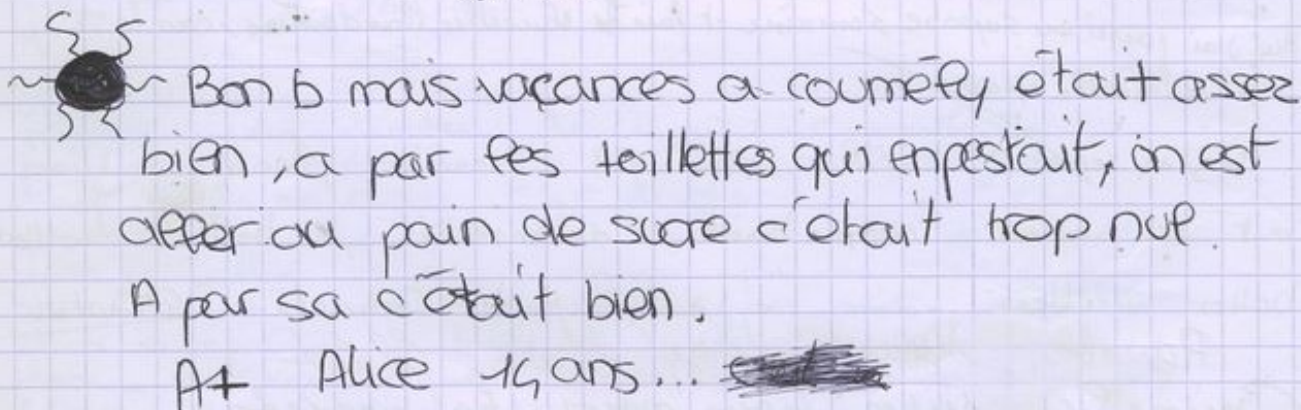 Bon b mais vacances a coumély était assez
bien, a par les toillettes qui enpestait, on est
aller au pain de sucre c'était trop nul.
A par sa c'était bien.
A+ Alice 14 ans...